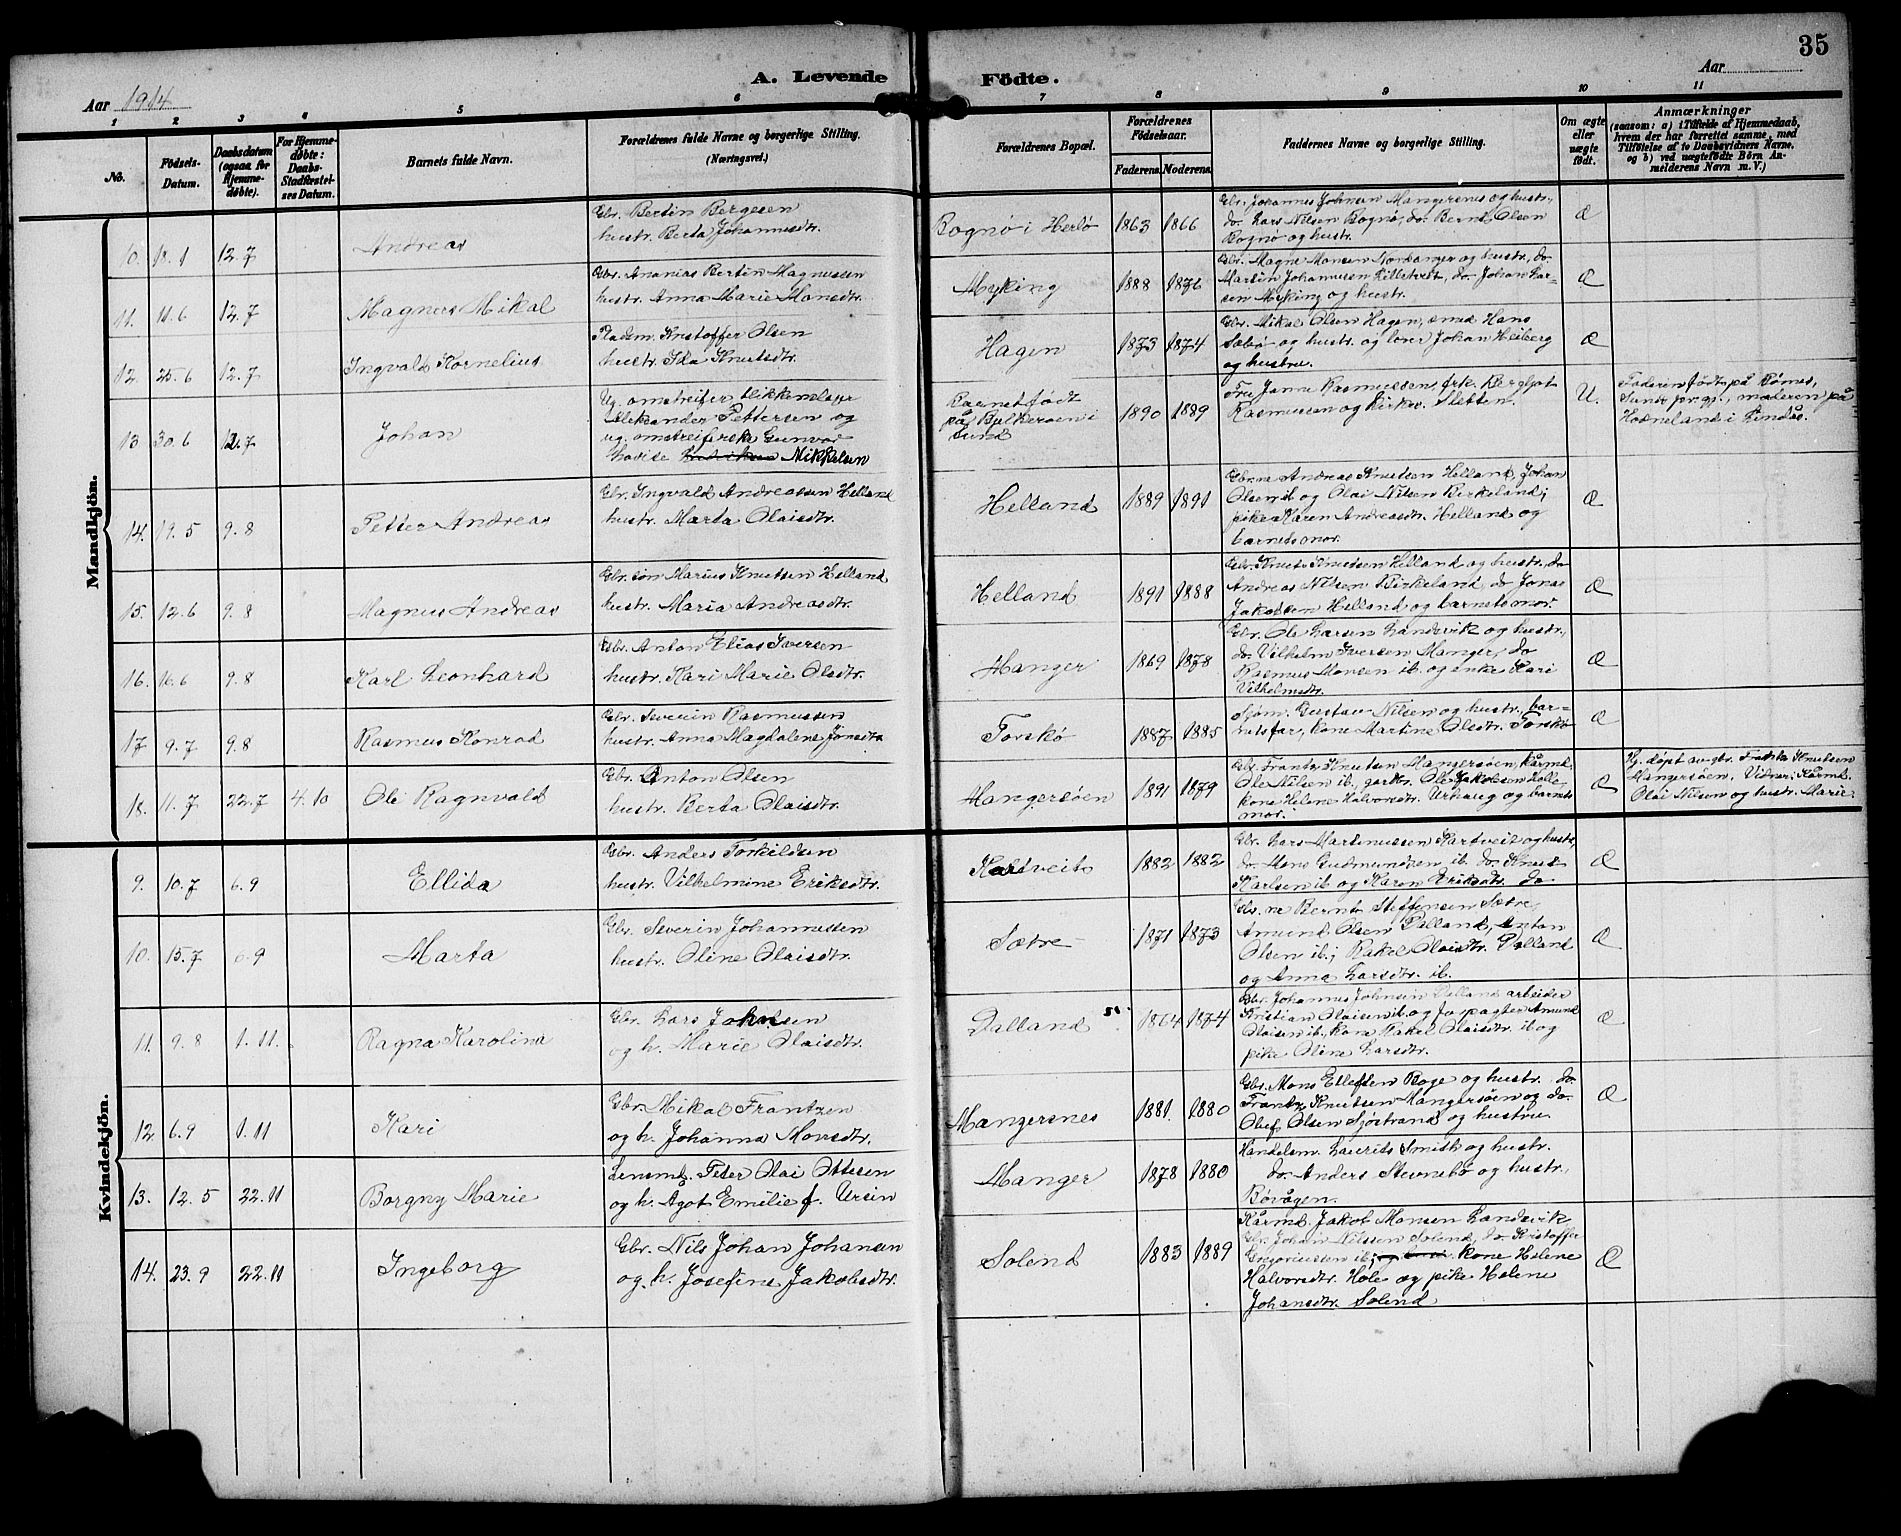 35
A. Levende Födte.
Aar 1914
Aar
1 2 3 4 5 6 7 8 9 10 11
No.
Födsels-Datum.
Daabsdatum (ogsaa for Hjemme-döbte).
For Hjemme-döbte: Daabs-Stadfæstel-ses Datum.
Barnets fulde Navn.
Forældrenes fulde Navne og borgerlige Stilling. (Næringsvei.)
Forældrenes Bopæl.
Forældrenes Födselsaar.
Faderens. Moderens.
Faddernes Navne og borgerlige Stilling.
Om ægte eller uægte födt.
Anmærkninger
(saasom: a) i Tilfælde af Hjemmedaab, hvem der har forrettet samme, med Tilföielse af to Daabsvidners Navne. og b) ved uægtefödte Börn An-melderens Navn m. V.)
Mandkjön.
10. 18.1 12.7 Andreas
Gbr. Bertin Bergesen
hustr. Berta Johannesdtr.
Bognø i Herlø 1863 1866
Gbr. Johannes Johnsen Mangersnes og hustr.,
do. Lars Nilsen Bognø, do. Bernt Olsen
Bognø og hustr.
Æ
11. 11.6 12.7 Magnus Mikal
Gbr. Ananias Bertin Magnussen
hustr. Anna Marie Monsdtr.
Myking 1888 1876
Gbr. Magne Monsen Nordanger og hustr., do.
Martin Johannesen Lilletvedt, do. Johan Lar-
sen Myking og hustr.
Æ
12. 25.6 12.7 Ingvald Kornelius
Pladsm. Kristoffer Olsen
hustr. Ida Knutsdtr.
Hagen 1873 1874
Gbr. Mikal Olsen Hagen, smed Hans
Sæbø og hustr. og Johan Heiberg
og hustru.
Æ
13 30.6 12.7 Johan
Ug. omstreifer blikkenslager
Aleksander Pettersen og
ug. omstreiferske Gunvor
Lovise Mikkelsen
Barnet født
på i
Sund
1890 1889
Fru Janna Rasmussen, frk. Bergljot
Rasmussen og kirkes. Sletten.
U.
Faderen født på Bømes,
Sund pr.gj., moderen på
Hodneland i Lindås.
14. 19.5 9.8 Petter Andreas
Gbr. Ingvald Andreassen Helland
hustr. Marta Olaisdtr.
Helland 1889 1891
Gbr.ne Andreas Knutsen Helland, Johan
Olsen ib og Olai Nilsen Birkeland;
pike Karen Andreasdtr. Helland og
barnets mor.
Æ
15. 12.6 9.8 Magnus Andreas
Gbr. søn Marius Knutsen Helland
hustr. Maria Andreasdtr.
Helland 1891 1888
Gbr. Knut Knutsen Helland og hustr., do
Andreas Nilsen Birkeland, do Jonas
Jakobsen Helland og barnets mor.
Æ
16. 16.6 9.8 Karl Leonhard
Gbr. Anton Elias Iversen
hustr. Kari Marie Olsdtr.
Manger 1869 1878
Gbr. Ole Larsen Landsvik og hustr.,
do. Vilhelm Iversen Manger, do
Rasmus Monsen ib. og enke Kari
Vilhelmsdtr.
Æ
17 9.7 9.8 Rasmus Konrad
Gbr. Severin Rasmussen
hustr. Anna Magdalene Jonsdtr
Torskø 1887 1885
Sjøm. Gustav Nilsen og hustr., bar-
netsfar, kone Martine Olsdtr. Torskø
Æ
18. 11.7 22.7 4.10 Ole Ragnvald
Gbr. Anton Olsen
hustr. Berta Olaisdtr.
Mangersøen 1891 1879
Gbr. Frantz Knutsen Mangersøen, kårmd.
Ole Nilsen ib., Ole Jakobsen Holle-
kone Helene Halvorsdtr. Urhaug og barnets
mor.
Æ
Hj. døpt av gbr. Frantz Knutsen
Mangersøen. Vidner: Kårmd.
Olai Nilsen og hustr. Marie.
Kvindekjön.
9. 10.7 6.9 Ellida
Gbr. Anders Torkildsen
hustr. Vilhelmine Eriksdtr.
Kartveit 1882 1882
Gbr. Lars Martinussen Kartveit og hustr.,
do. Mons Gudmundsen ib. do. Knut
Karlsen ib og Karen Eriksdtr. do
Æ
10. 15.7 6.9 Marta
Gbr. Severin Johannessen
hustr. Oline Olaisdtr.
Sætre 1871 1873
Gbr. ne Bernt Steffensen Sætre,
Amund Olsen Dalland, Anton
Olsen ib; Rakel Olaisdtr. Dalland
og Anna Larsdtr. ib.
Æ
11. 9.8 1.11. Ragna Karolina
Gbr. Lars Johnsen
og h. Marie Olaisdtr.
Dalland 1864 1874
Gbr. Johannes Johnsen Dalland arbeider
Kristian Olaisen ib. og forpagter Amund
Olaisen ib., kone Rakel Olaisdtr. ib og
pike Oline Larsdtr.
Æ
12. 6.9 1.11 Kari
Gbr. Mikal Frantzen
og h. Johanna Monsdtr.
Mangersnes 1881. 1880
Gbr. Mons Ellefsen Boge og hustr. do.
Frantz Knutsen Mangersøen og do.
Olef Olsen Sjøstrand og hustru.
Æ
13. 12.5 22.11 Borgny Marie
Lensmd. Peter Olai Ottesen
og h. Agot Emilie f. Ursin
Manger 1878 1880
Handelsm. Laurits Smith og hustr.
do. Anders Stevnebø og hustr.,
Bøvågen.
14. 23.9 22.11 Ingeborg
Gbr. Nils Johan Johansen
og h. Josefine Jakobsdtr.
Solend 1883 1889
Kårmd. Jakob Monsen Landsvik
Gbr. Johan Nilssen Solend, do. Kristoffer
Gregoriussen ib; kone Helene
Halvorsdtr. Hole og pike Helene
Johansdtr. Solend
Æ